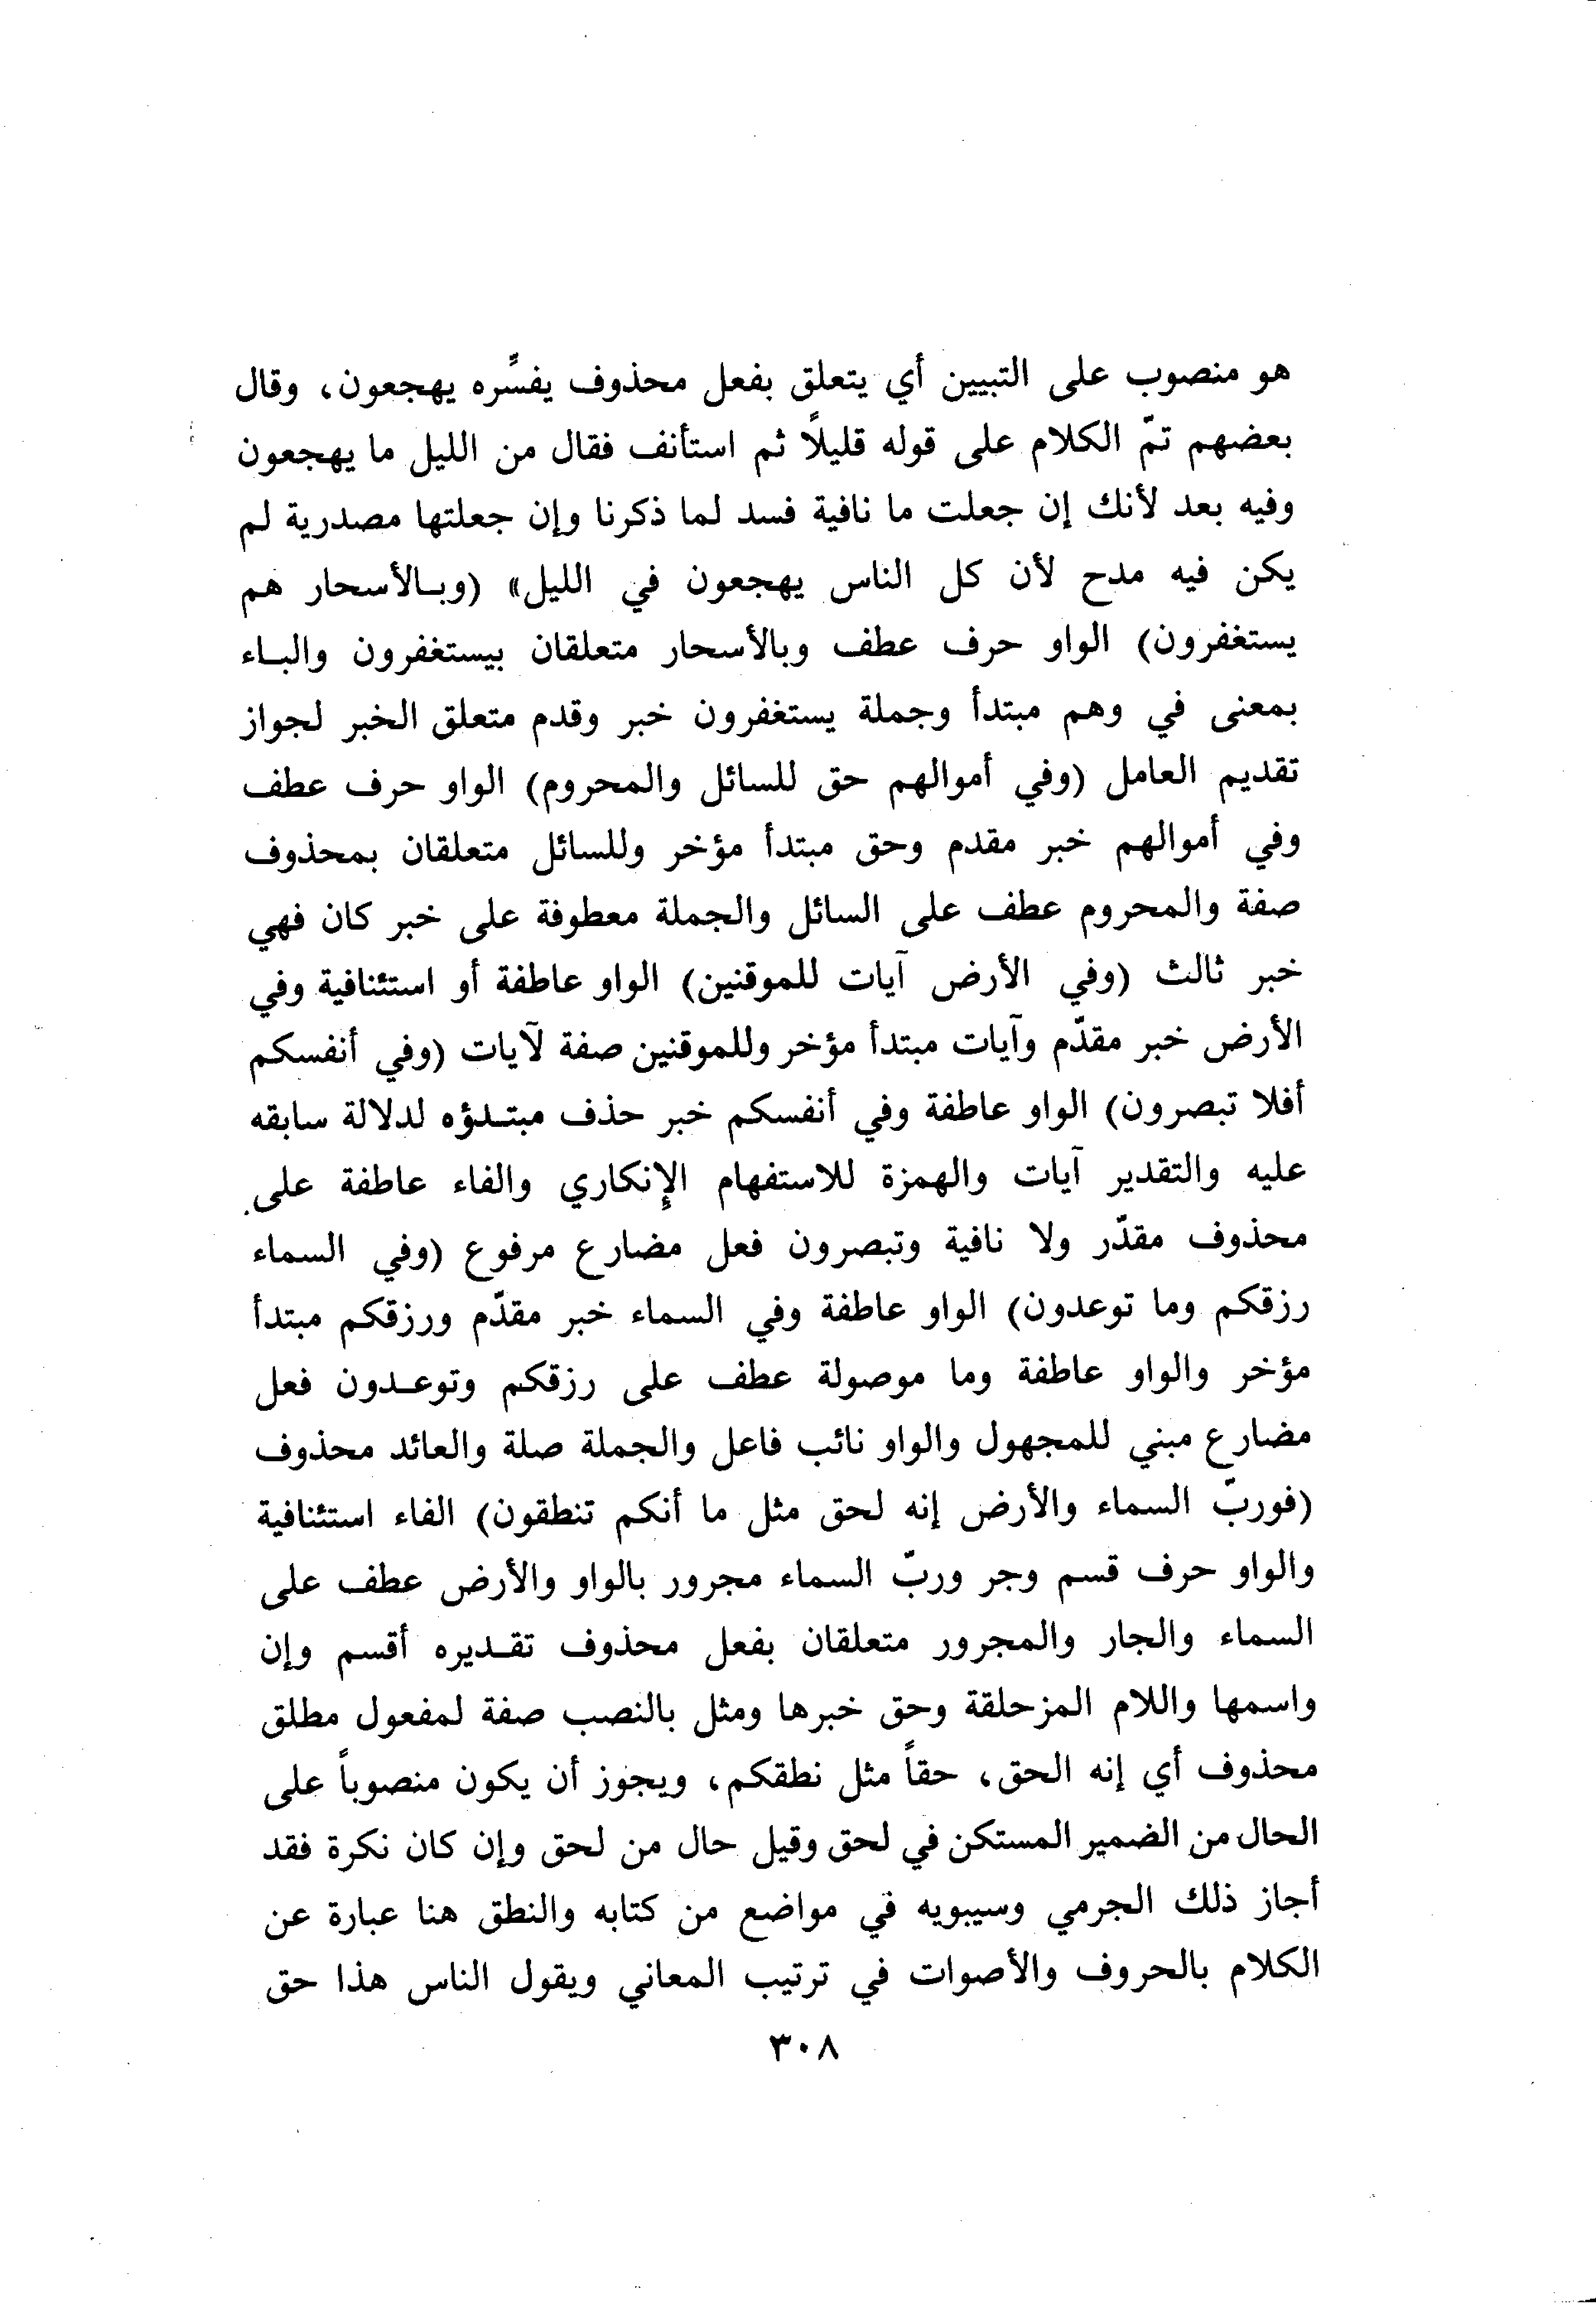 هو منصوب على التبيين أي يتعلق بفعل محذوف يفسّره يهجعون، وقال
بعضهم تمّ الكلام على قوله قليلاً ثم استأنف فقال من الليل ما يهجعون
وفيه بعد لأنك إن جعلت ما نافية فسد لما ذكرنا وإن جعلتها مصدرية لم
يكن فيه مدح لأن كل الناس يهجعون في الليل» (وبالأسحار هم
يستغفرون) الواو حرف عطف وبالأسحار متعلقان بيستغفرون والباء
بمعنى في وهم مبتدأ وجملة يستغفرون خبر وقدم متعلق الخبر لجواز
تقديم العامل (وفي أموالهم حق للسائل والمحروم) الواو حرف عطف
وفي أموالهم خبر مقدم وحق مبتدأ مؤخر وللسائل متعلقان بمحذوف
صفة والمحروم عطف على السائل والجملة معطوفة على خبر كان فهي
خبر ثالث (وفي الأرض آيات للموقنين) الواو عاطفة أو استئنافية وفي
الأرض خبر مقدّم وآيات مبتدأ مؤخر وللموقنين صفة لآيات (وفي أنفسكم
أفلا تبصرون) الواو عاطفة وفي أنفسكم خبر حذف مبتدؤه لدلالة سابقه
عليه والتقدير آيات والهمزة للاستفهام الإنكاري والفاء عاطفة على
محذوف مقدّر ولا نافية وتبصرون فعل مضارع مرفوع (وفي السماء
رزقكم وما توعدون) الواو عاطفة وفي السماء خبر مقدّم ورزقكم مبتدأ
مؤخر والواو عاطفة وما موصولة عطف على رزقكم وتوعدون فعل
مضارع مبني للمجهول والواو نائب فاعل والجملة صلة والعائد محذوف
(فوربّ السماء والأرض إنه لحق مثل ما أنكم تنطقون) الفاء استئنافية
والواو حرف قسم وجر وربّ السماء مجرور بالواو والأرض عطف على
السماء والجار والمجرور متعلقان بفعل محذوف تقديره أقسم وإن
واسمها واللام المزحلقة وحق خبرها ومثل بالنصب صفة لمفعول مطلق
محذوف أي إنه الحق، حقاً مثل نطقكم، ويجوز أن يكون منصوباً على
الحال من الضمير المستكن في لحق وقيل حال من لحق وإن كان نكرة فقد
أجاز ذلك الجرمي وسيبويه في مواضع من كتابه والنطق هنا عبارة عن
الكلام بالحروف والأصوات في ترتيب المعاني ويقول الناس هذا حق
٣٠٨